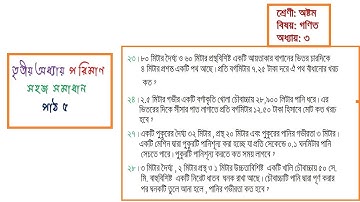 শ্রেণী: অষ্টম
বিষয়: গণিত
অধ্যায়: ৩
তৃতীয় অধ্যায় পরিমাপ
সহজ সমাধান
পাঠ ৫
২৩। ৮০ মিটার দৈর্ঘ্য ও ৬০ মিটার প্রস্থবিশিষ্ট একটি আয়তাকার বাগানের ভিতর চারদিকে
৪ মিটার প্রশস্ত একটি পথ আছে। প্রতি বর্গমিটার ৭.২৫ টাকা দরে ঐ পথ বাঁধানোর খরচ
কত ?
২৪। ২.৫ মিটার গভীর একটি বর্গাকৃতি খোলা চৌবাচ্চায় ২৮,৯০০ লিটার পানি ধরে। এর
ভিতরের দিকে সীসার পাত লাগাতে প্রতি বর্গমিটার ১২.৫০ টাকা হিসাবে মোট কত খরচ
হবে ?
২৭। একটি পুকুরের দৈর্ঘ্য ৩২ মিটার , প্রস্থ ২০ মিটার এবং পুকুরের পানির গভীরতা ৩ মিটার।
একটি মেশিন দ্বারা পুকুরটি পানিশূন্য করা হচ্ছে যা প্রতি সেকেন্ডে ০.১ ঘনমিটার পানি
সেচতে পারে। পুকুরটি পানিশূন্য করতে কত সময় লাগবে ?
২৮। ৩ মিটার দৈর্ঘ্য , ২ মিটার প্রস্থ ও ১ মিটার উচ্চতাবিশিষ্ট একটি খালি চৌবাচ্চায় ৫০ সে.
মি. বাহুবিশিষ্ট একটি নিরেট ধাতব ঘনক রাখা আছে। চৌবাচ্চাটি পানি দ্বারা পূর্ণ করার
পর ঘনকটি তুলে আনা হলে , পানির গভীরতা কত হবে ?